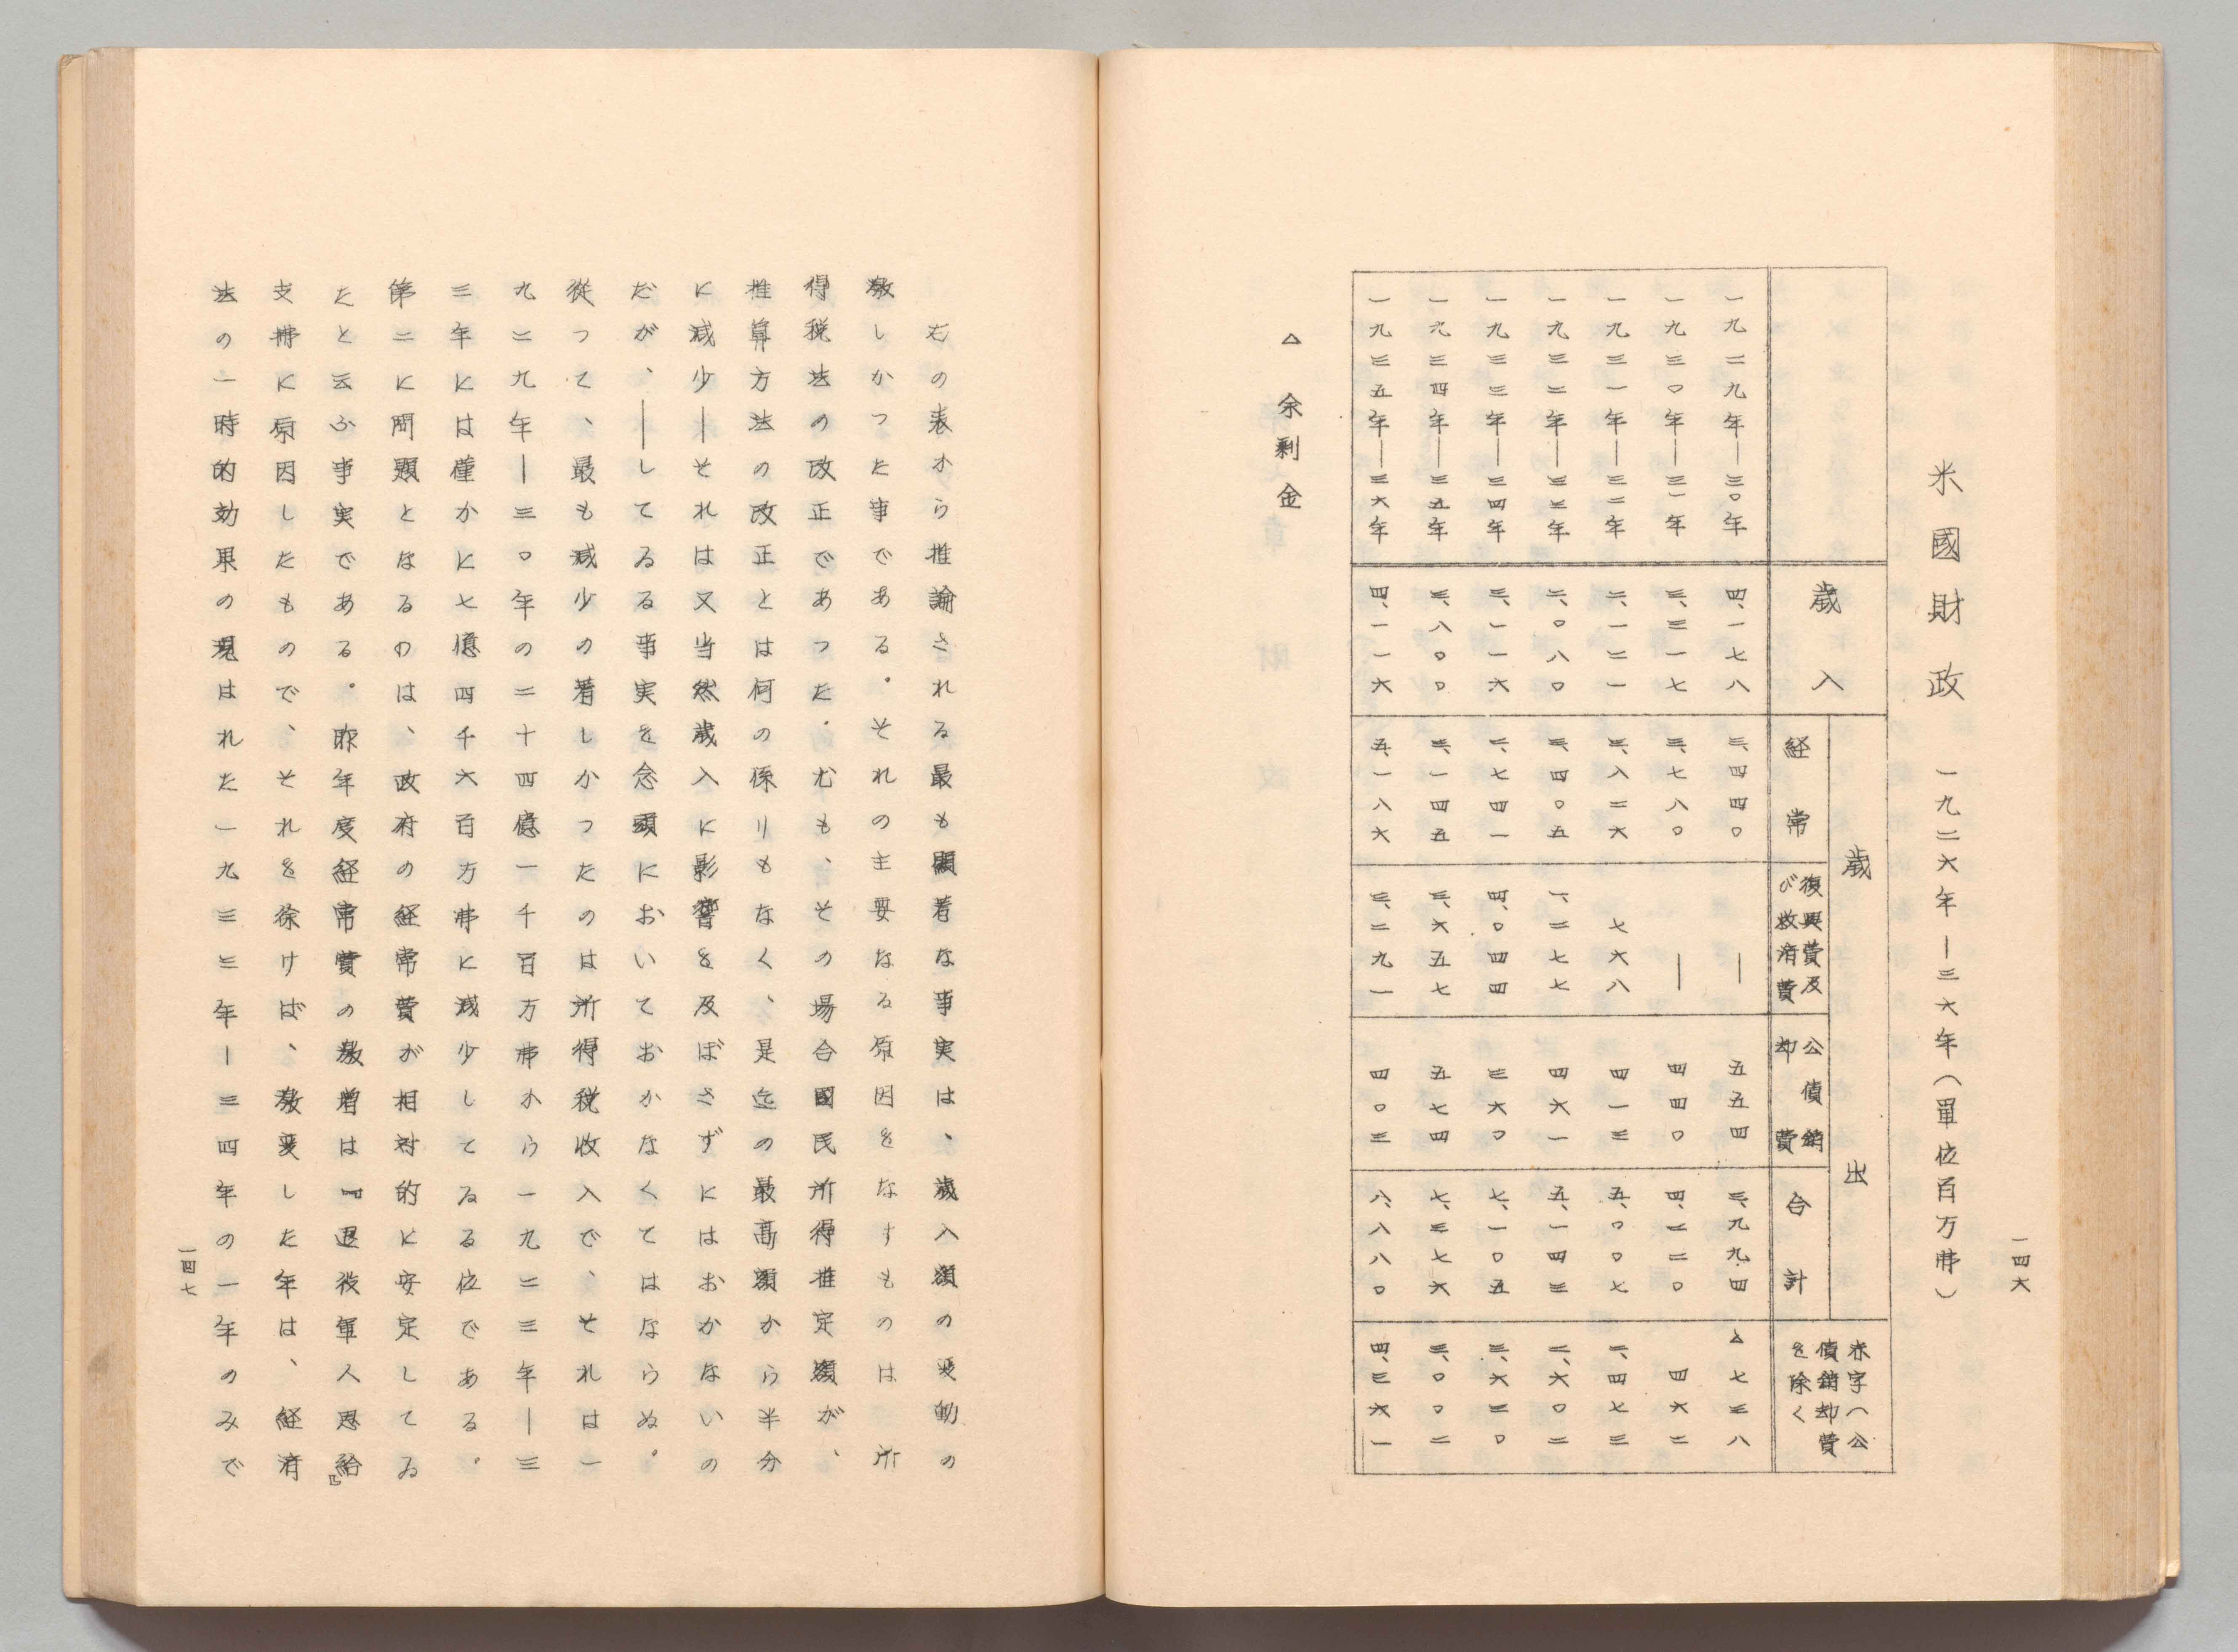 一四六
米國財政　一九二六年―三六年（単位百万弗）
歳入
歳出
経常
復興費及
び救済費
公債銷
却費
合計
赤字（公
債銷却費
を除く
一九二九年―三〇年　四、一七八　三、四四〇　―　五五四　三、九九四　△七三八
一九三〇年―三一年　三、三一七　三、七八〇　―　四四〇　四、二二〇　四六二
一九三一年―三二年　二、一二一　三、八二六　七六八　四一三　五、〇〇七　二、四七三
一九三二年―三三年　二、〇八〇　三、四〇五　一、二七七　四六一　五、一四三　二、六〇二
一九三三年―三四年　三、一一六　二、七四一　四、〇四四　三六〇　七、一〇五　三、六三〇
一九三四年―三五年　三、八〇〇　三、一四五　三、六五七　五七四　七、三七六　三、〇〇二
一九三五年―三六年　四、一一六　五、一八六　三、二九一　四〇三　八、八八〇　四、三六一
△　余剰金
右の表から推論される最も顕著な事実は、歳入額の変動の
激しかつた事である。それの主要なる原因をなすものは所
得税法の改正であつた。尤も、その場合國民所得推定額が、
推算方法の改正とは何の係りもなく、是迄の最高額から半分
に減少―それは又当然歳入に影響を及ぼさずにはおかないの
だが、―してゐる事実を念頭においておかなくてはならぬ。
従つて、最も減少の著しかつたのは所得税收入で、それは一
九二九年―三〇年の二十四億一千百万弗から一九三三年―三
三年には僅かに七億四千六百万弗に減少してゐる位である。
第二に問題となるのは、政府の経常費が相対的に安定してゐ
たと云ふ事実である。昨年度経常費の激増は『退役軍人恩給』
支拂に原因したもので、それを徐けば、激変した年は、経済
法の一時的効果の現はれた一九三三年―三四年の一年のみで
一四七